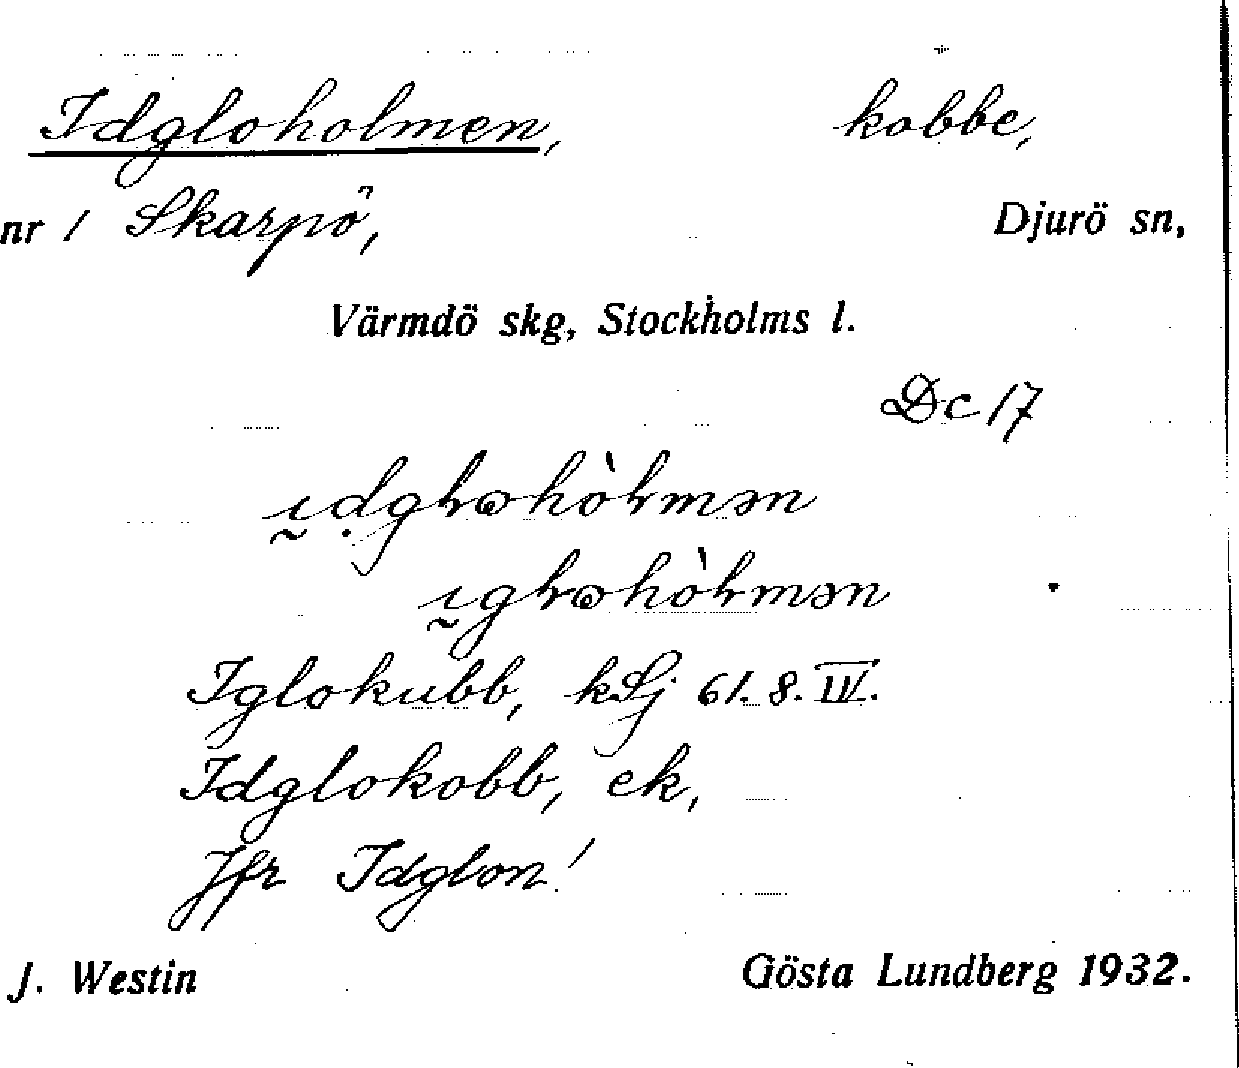 Idgloholmen, kobbe,
nr 1 Skarpö, Djurö sn,
Värmdö skg, Stockholms l.
Dc 17
Iglokubb, kSj 61. 8. IV.
Idglokobb, ek,
Jfr Idglon!
J. Westin Gösta Lundberg 1932.